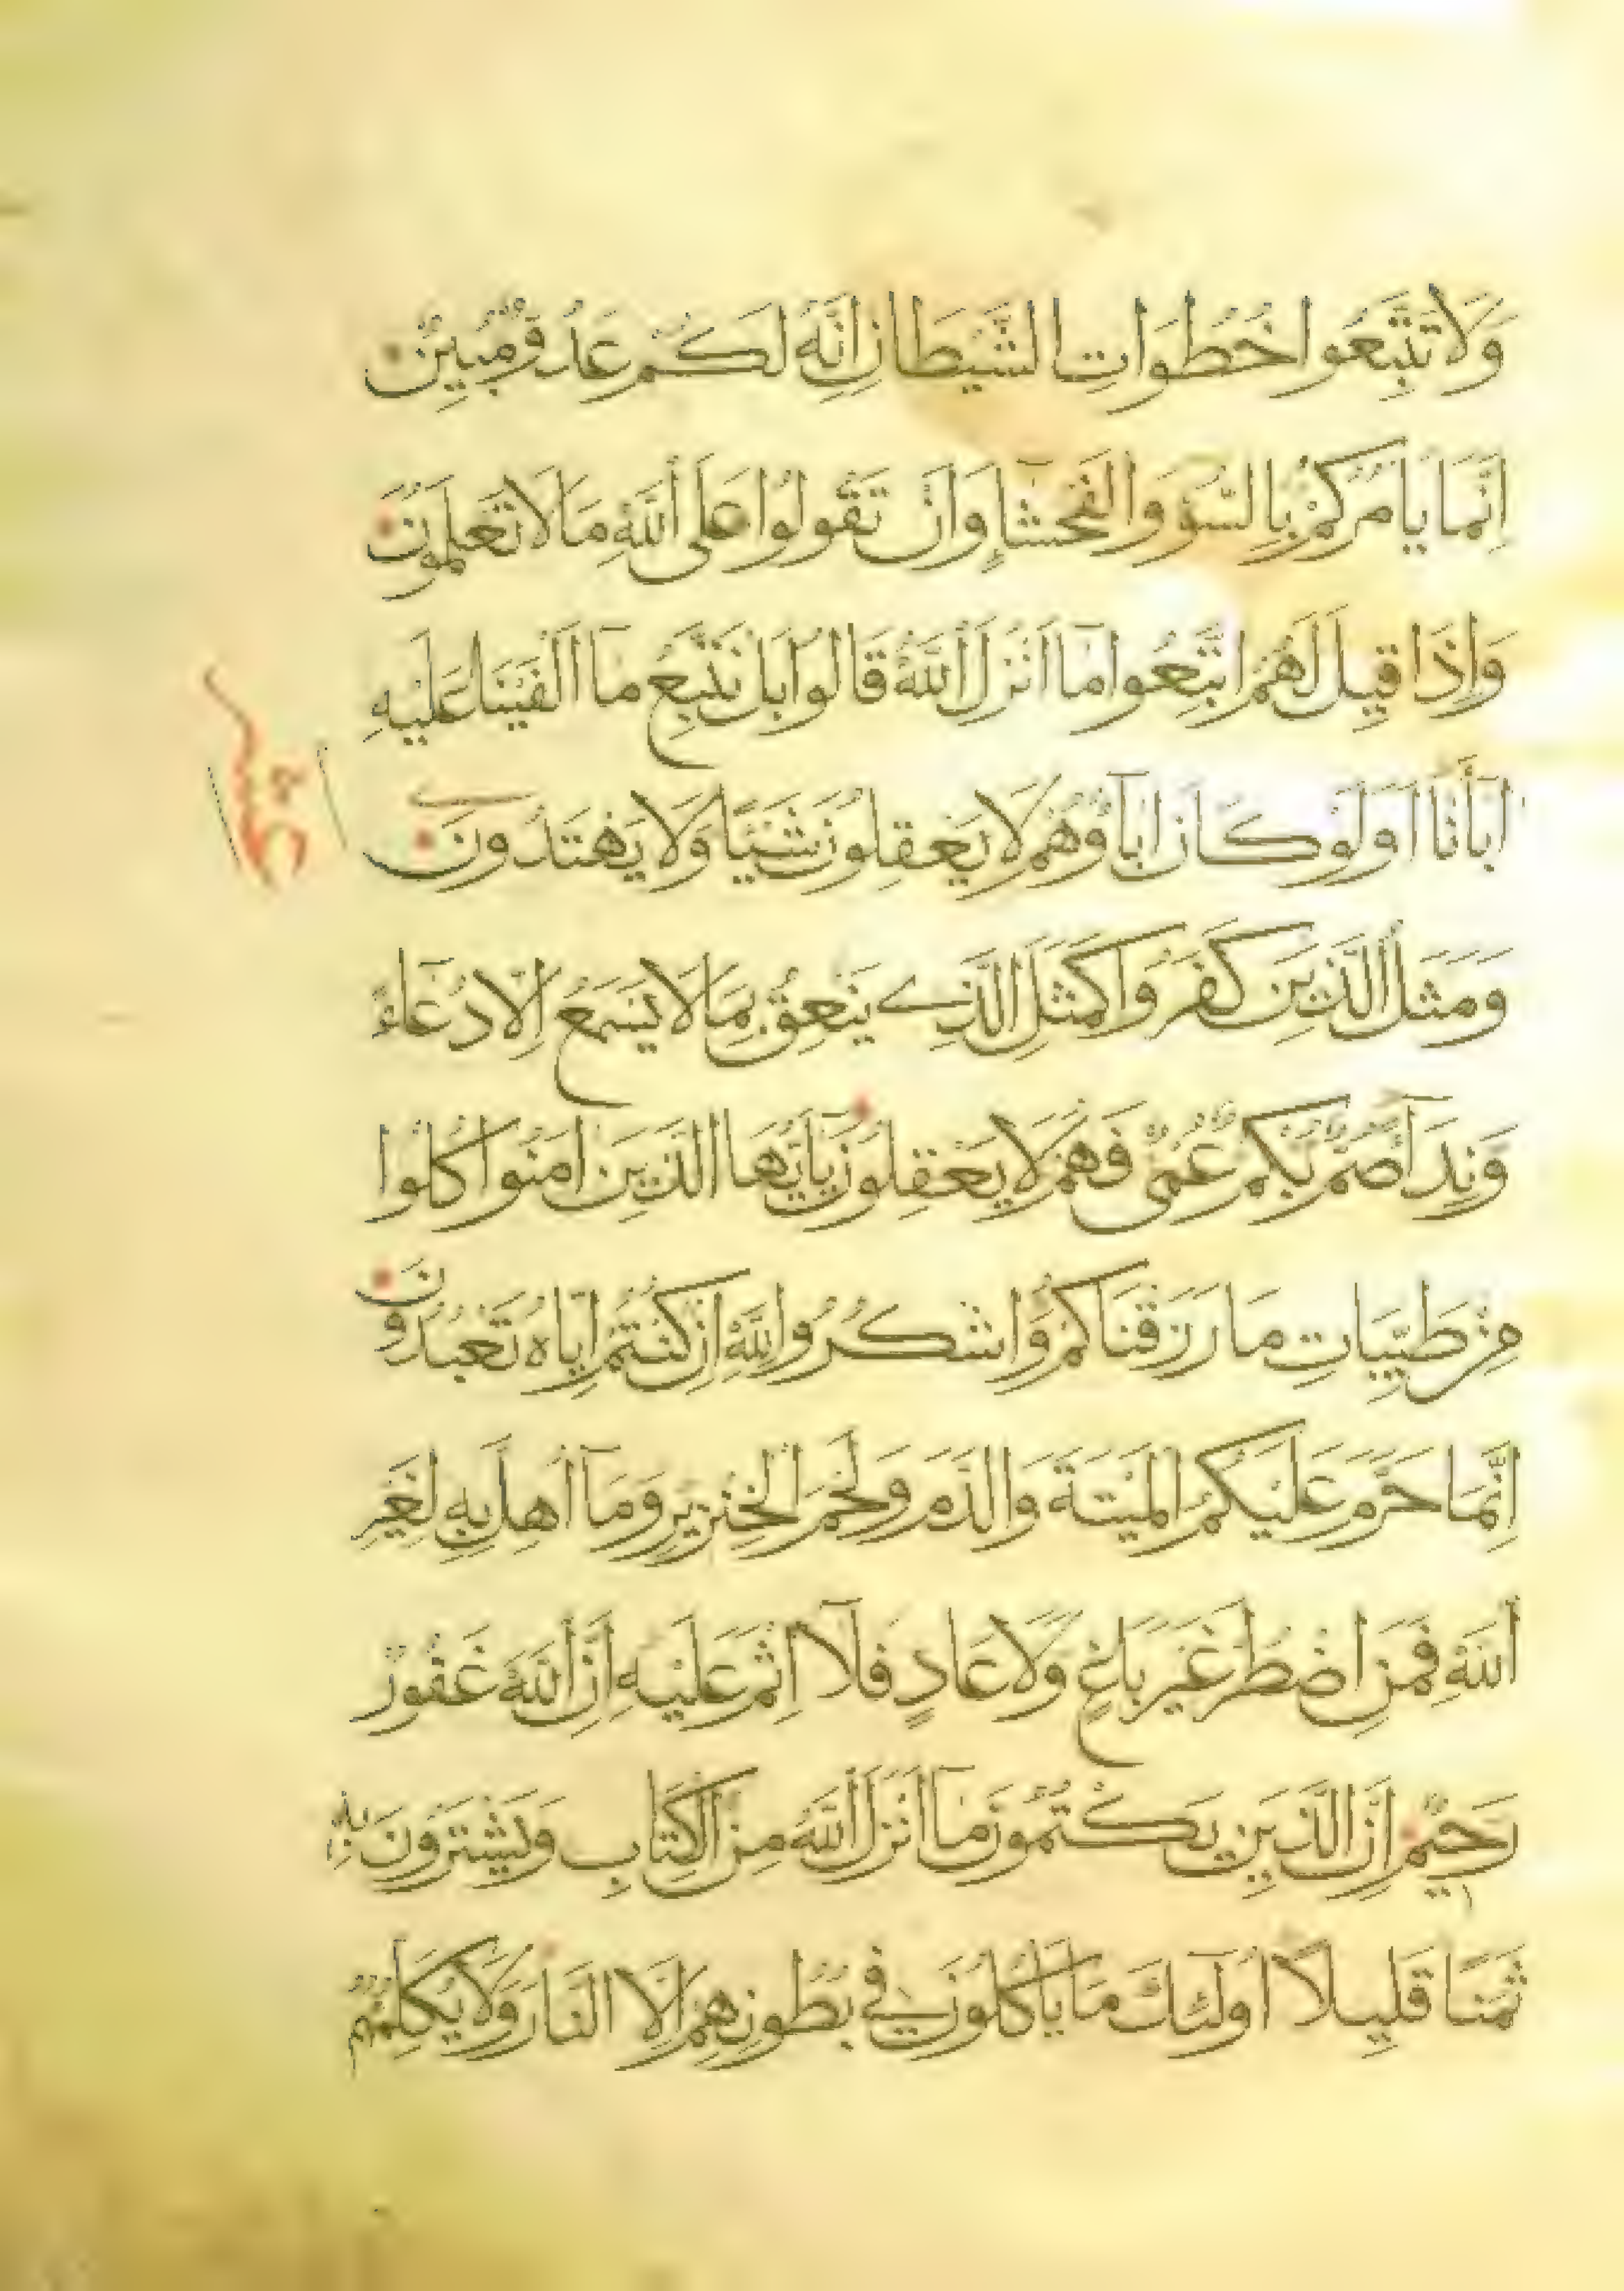 وَلَا تَتَّبِعُوا خُطُوَاتِ الشَّيْطَانِ اِنَّهُ لَكُمْ عَدُوٌّ مُبِينٌ
اِنَّمَا يَامُرُكُمْ بِالسُّوءِ وَالْفَحْشَآءِ وَاَنْ تَقُولُوا عَلَى اللّٰهِ مَا لَا تَعْلَمُونَ
وَاِذَا قِيلَ لَهُمُ اتَّبِعُوا مَآ اَنْزَلَ اللّٰهُ قَالُوا بَلْ نَتَّبِعُ مَآ اَلْفَيْنَا عَلَيْهِ
اٰبَآءَنَا اَوَلَوْ كَانَ اٰبَآؤُهُمْ لَا يَعْقِلُونَ شَيْئًا وَلَا يَهْتَدُونَ
وَمَثَلُ الَّذِينَ كَفَرُوا كَمَثَلِ الَّذِي يَنْعِقُ بِمَا لَا يَسْمَعُ اِلَّا دُعَآءً
وَنِدَآءً صُمٌّ بُكْمٌ عُمْيٌ فَهُمْ لَا يَعْقِلُونَ يَآ اَيُّهَا الَّذِينَ اٰمَنُوا كُلُوا
مِنْ طَيِّبَاتِ مَا رَزَقْنَاكُمْ وَاشْكُرُوا لِلّٰهِ اِنْ كُنْتُمْ اِيَّاهُ تَعْبُدُونَ
اِنَّمَا حَرَّمَ عَلَيْكُمُ الْمَيْتَةَ وَالدَّمَ وَلَحْمَ الْخِنْزِيرِ وَمَآ اُهِلَّ بِهِ لِغَيْرِ
اللّٰهِ فَمَنِ اضْطُرَّ غَيْرَ بَاغٍ وَلَا عَادٍ فَلَآ اِثْمَ عَلَيْهِ اِنَّ اللّٰهَ غَفُورٌ
رَحِيمٌ اِنَّ الَّذِينَ يَكْتُمُونَ مَآ اَنْزَلَ اللّٰهُ مِنَ الْكِتَابِ وَيَشْتَرُونَ بِهِ
ثَمَنًا قَلِيلًا اُولَٰٓئِكَ مَا يَاكُلُونَ فِي بُطُونِهِمْ اِلَّا النَّارَ وَلَا يُكَلِّمُهُمُ